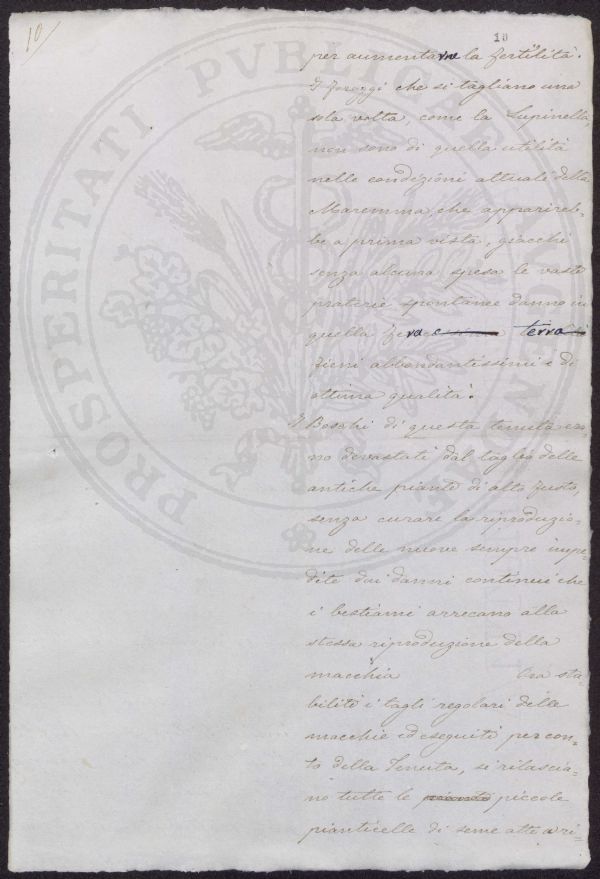 10
10
per aumentarne la fertilità.
I foraggi che si tagliano una
sola volta, come la Lupinella,
non sono di quella utilità
nelle condizioni attuali della
Maremma, che apparireb-
be a prima vista, giacchè
senza alcuna spesa le vaste
praterie spontanee danno in
quella terra
fieni abbondantissimi e di
ottima qualità.
I Boschi di questa tenuta era-
no devastati dal taglio delle
antiche piante di alto fusto,
senza curare la riproduzio-
ne delle nuove sempre impe-
dite dai danni continui che
i bestiami arrecano alla
stessa riproduzione della
macchia Ora sta-
biliti i tagli regolari delle
macchie ed eseguiti per con-
to della Tenuta, si rilascia-
no tutte le piccole
pianticelle di seme atte a ri-
PROSPERITATI PVBLICAE AVGENDAE